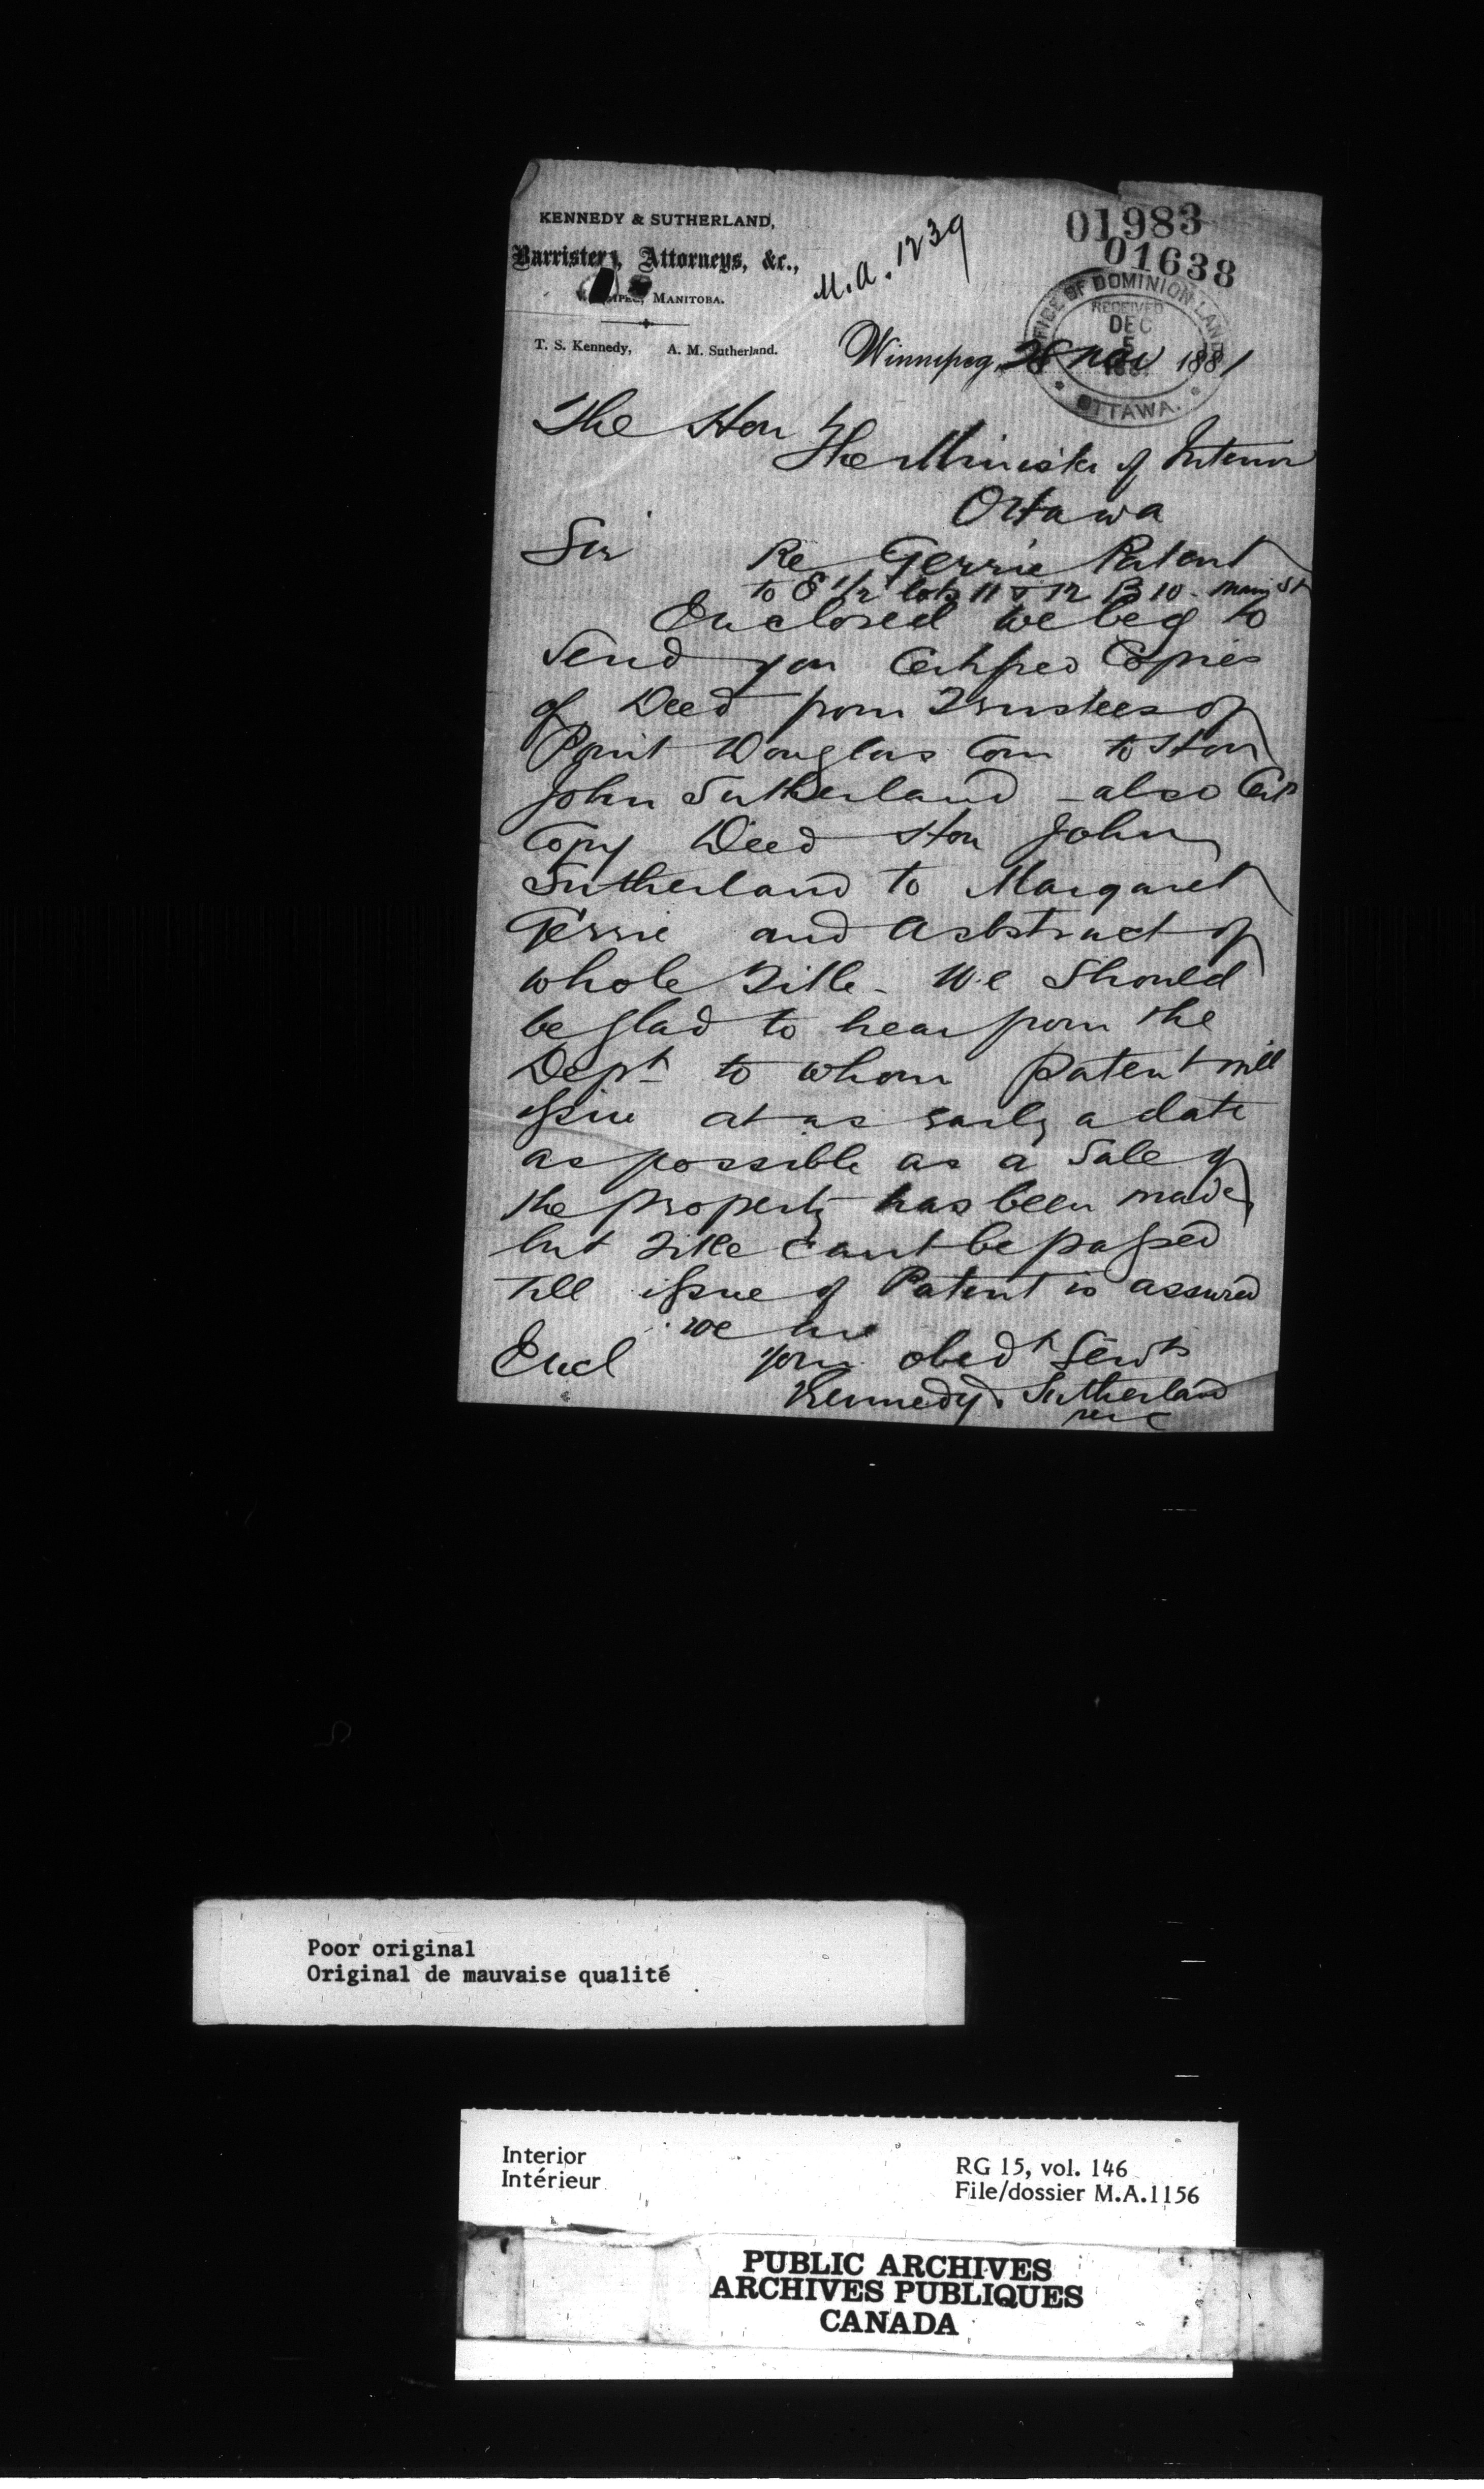 KENNEDY & SUTHERLAND,
Barristers, Attorneys, &c.,
Winnipeg, Manitoba.
T. S. Kennedy, A. M. Sutherland.
M.A. 1239
01983
01638
OFFICE OF DOMINION LANDS
RECEIVED
DEC
5
1881
OTTAWA.
Winnipeg, 28 Nov 1881
The Hon
The Minister of Interior
Ottawa
Sir
Re Gerrie Patent
to E 1/2 lots 11 & 12 B 10 - Main St
Enclosed we beg to
send you Certified Copies
of Deed from Trustees of
Point Douglas Com to Hon
John Sutherland - also Cert
Copy Deed Hon John
Sutherland to Margaret
Gerrie and Abstract of
whole Title - We Should
be glad to hear from the
Dept to whom Patent will
issue at as early a date
as possible as a Sale of
the property has been made
but Title cant be passed
till issue of Patent is assured
we are
Encl your obedt Servts
Kennedy & Sutherland
Poor original
Original de mauvaise qualité
Interior
Intérieur
RG 15, vol. 146
File/dossier M.A.1156
PUBLIC ARCHIVES
ARCHIVES PUBLIQUES
CANADA